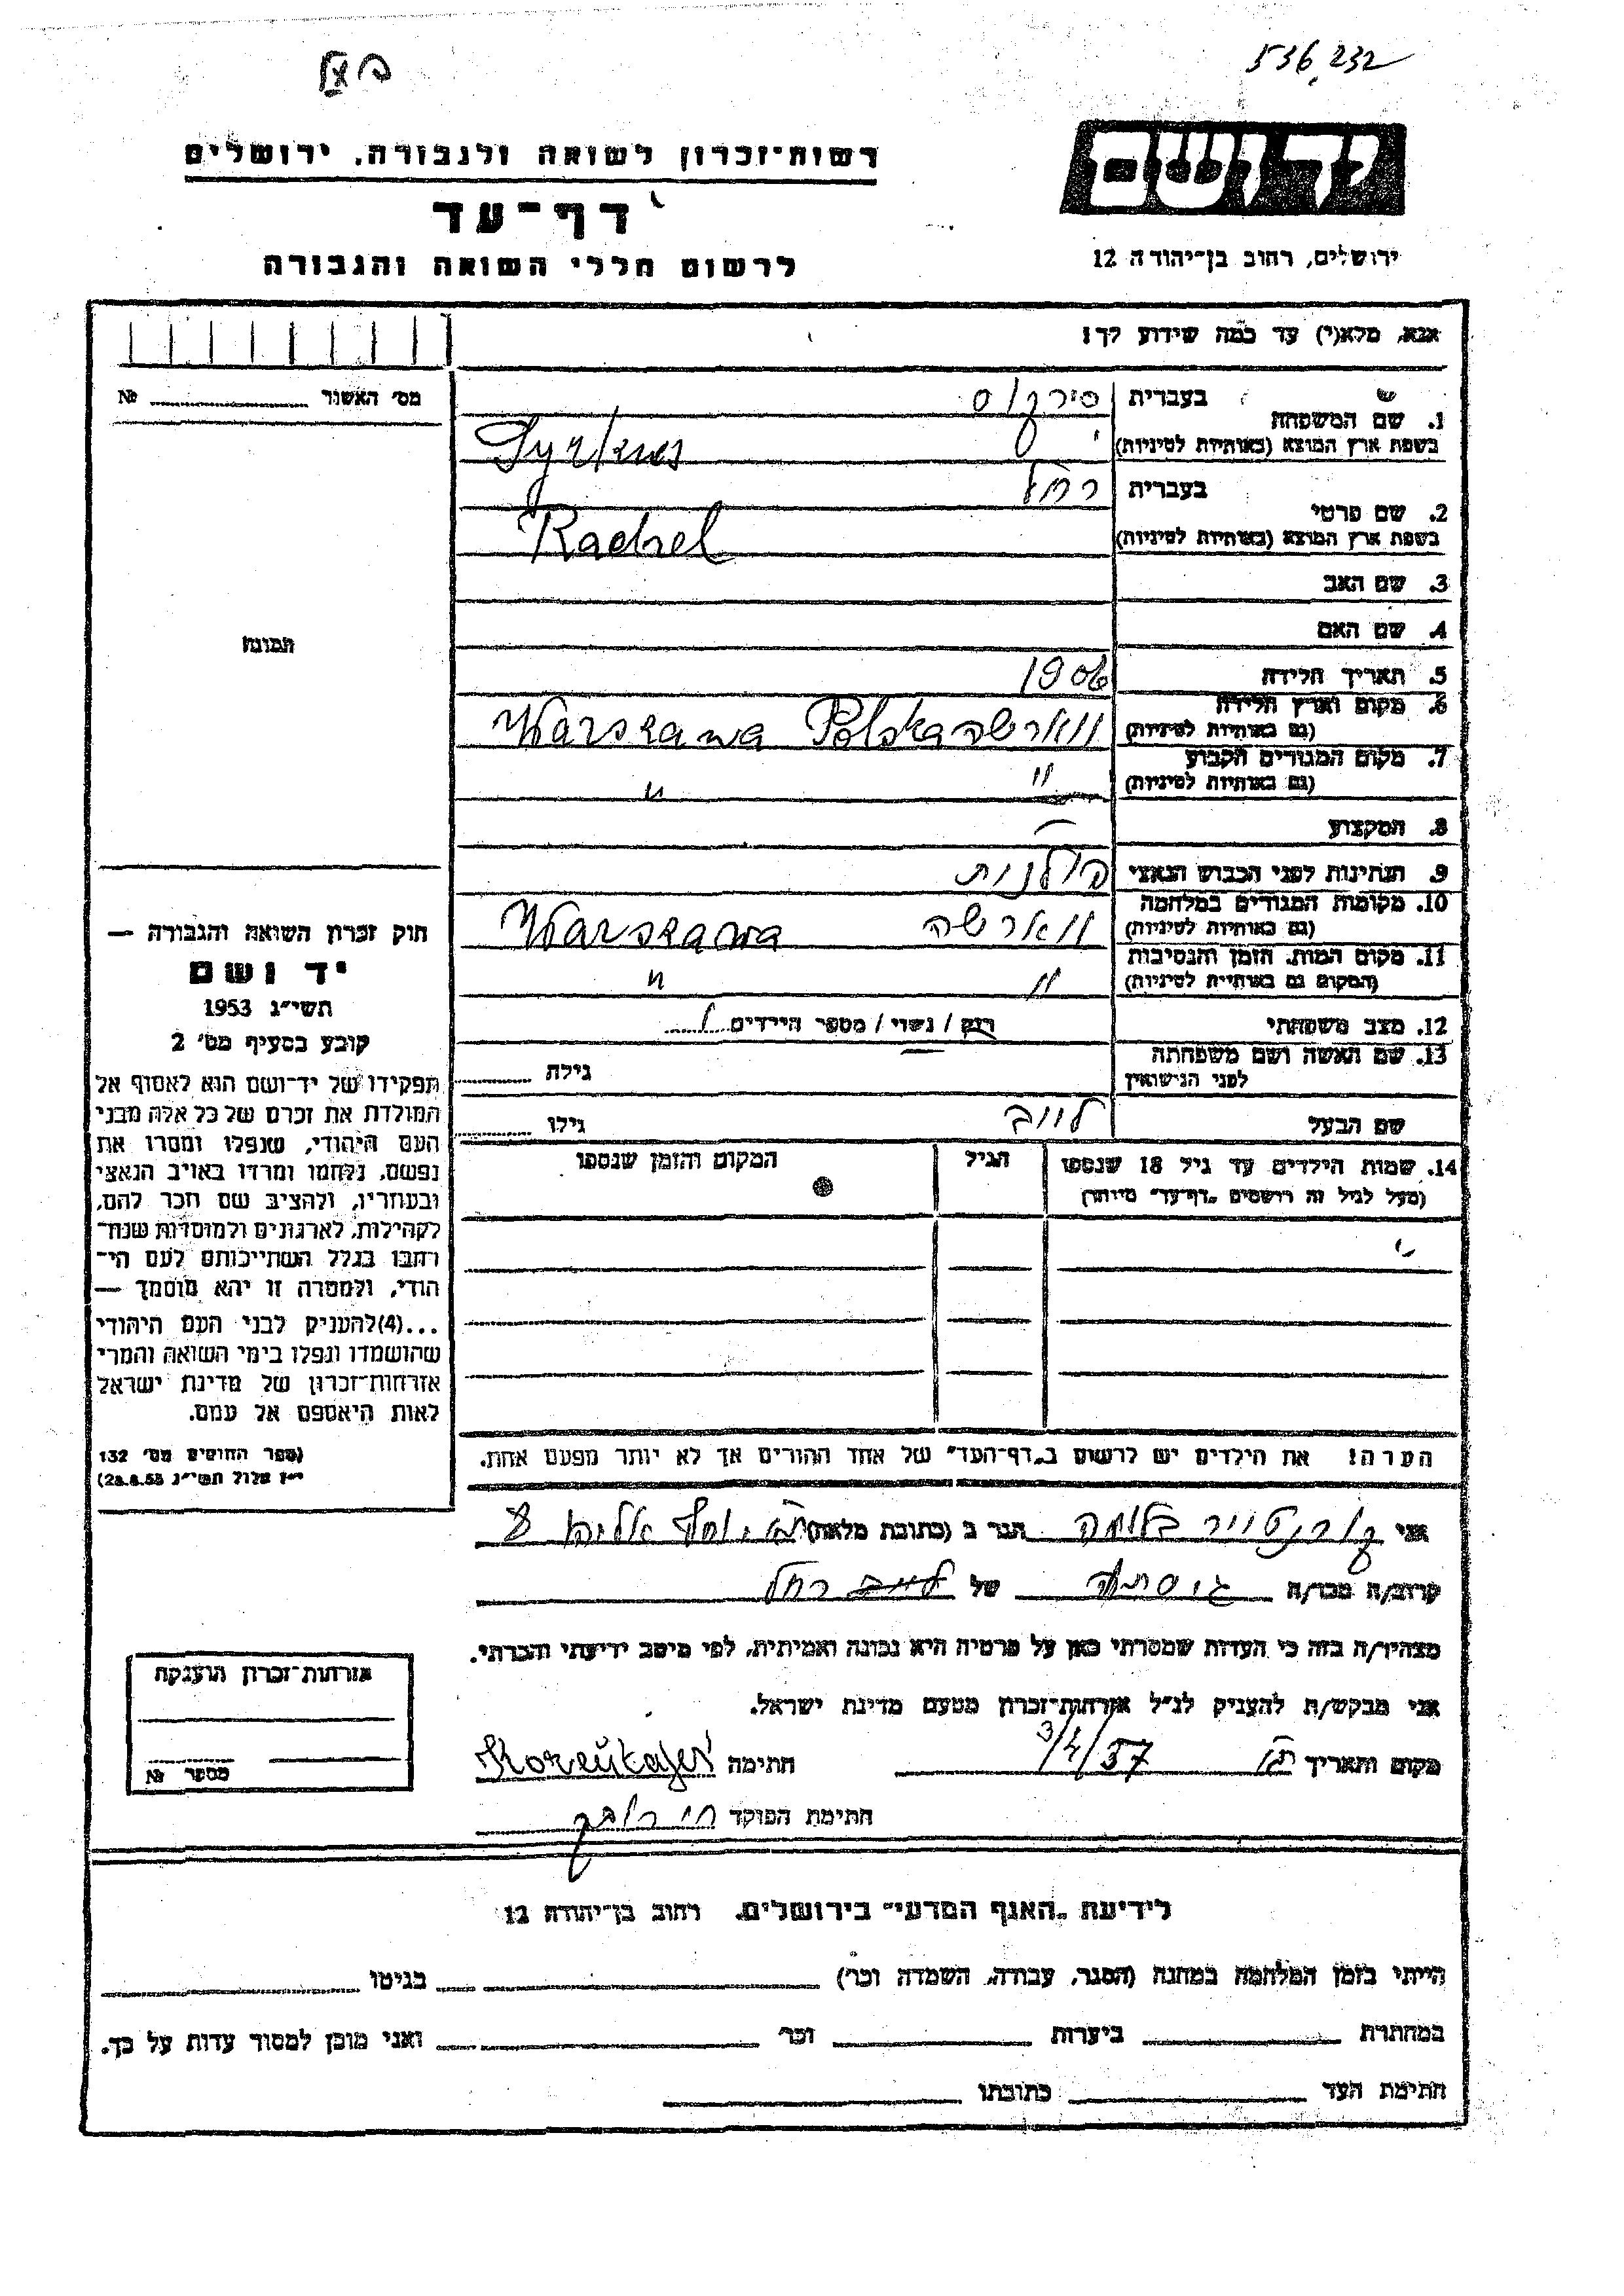 536,232
יד ושם
רשות־זכרון לשואה ולגבורה, ירושלים
דף־עד
לרשום חללי השואה והגבורה
ירושלים, רחוב בן־יהודה 12
אנא, מלא(י) עד כמה שידוע לך!
מס׳ האשור № ........
1. שם המשפחה
בעברית סירקוס
בשפת ארץ המוצא (באותיות לטיניות) Syrkus
2. שם פרטי
בעברית רחל
בשפת ארץ המוצא (באותיות לטיניות) Rachel
3. שם האב
4. שם האם
תמונה
5. תאריך הלידה 1906
6. מקום וארץ הלידה
(גם באותיות לטיניות) ווארשה Warszawa Polska
7. מקום המגורים הקבוע
(גם באותיות לטיניות) " "
8. המקצוע —
9. הנתינות לפני הכבוש הנאצי פולנית
10. מקומות המגורים במלחמה
(גם באותיות לטיניות) ווארשה Warszawa
11. מקום המות, הזמן והנסיבות
(המקום גם באותיות לטיניות) " "
12. מצב משפחתי רוק / נשוי / מספר הילדים 1
13. שם האשה ושם משפחתה
לפני הנישואין גילה ........
שם הבעל לייב גילו ........
14. שמות הילדים עד גיל 18 שנספו הגיל המקום והזמן שנספו
(מעל לגיל זה רושמים „דף־עד" מיוחד)
הערה! את הילדים יש לרשום ב„דף־העד" של אחד ההורים אך לא יותר מפעם אחת.
חוק זכרון השואה והגבורה —
יד ושם
תשי״ג 1953
קובע בסעיף מס׳ 2
תפקידו של יד־ושם הוא לאסוף אל
המולדת את זכרם של כל אלה מבני
העם היהודי, שנפלו ומסרו את
נפשם, נלחמו ומרדו באויב הנאצי
ובעוזריו, ולהציב שם וזכר להם,
לקהילות, לארגונים ולמוסדות שנח־
רבו בגלל השתייכותם לעם הי־
הודי, ולמטרה זו יהא מוסמך —
...(4) להעניק לבני העם היהודי
שהושמדו ונפלו בימי השואה והמרי
אזרחות־זכרון של מדינת ישראל
לאות היאספם אל עמם.
(ספר החוקים מס׳ 132
י״ז אלול תשי״ג 28.8.53)
אני בלומה הגר ב (כתובת מלאה)
קרוב/ה מכר/ה גיסתה של רחל
מצהיר/ה בזה כי העדות שמסרתי כאן על פרטיה היא נכונה ואמיתית, לפי מיטב ידיעתי והכרתי.
אני מבקש/ת להעניק לנ״ל אזרחות־זכרון מטעם מדינת ישראל.
מקום ותאריך ת"א 3/4/57 חתימה
חתימת הפוקד
אזרחות־זכרון הוענקה
מספר №
לידיעת „האגף המדעי" בירושלים, רחוב בן־יהודה 12
הייתי בזמן המלחמה במחנה (הסגר, עבודה, השמדה וכו׳) בגיטו
במחתרת ביערות וכו׳ ואני מוכן למסור עדות על כך.
חתימת העד כתובתו